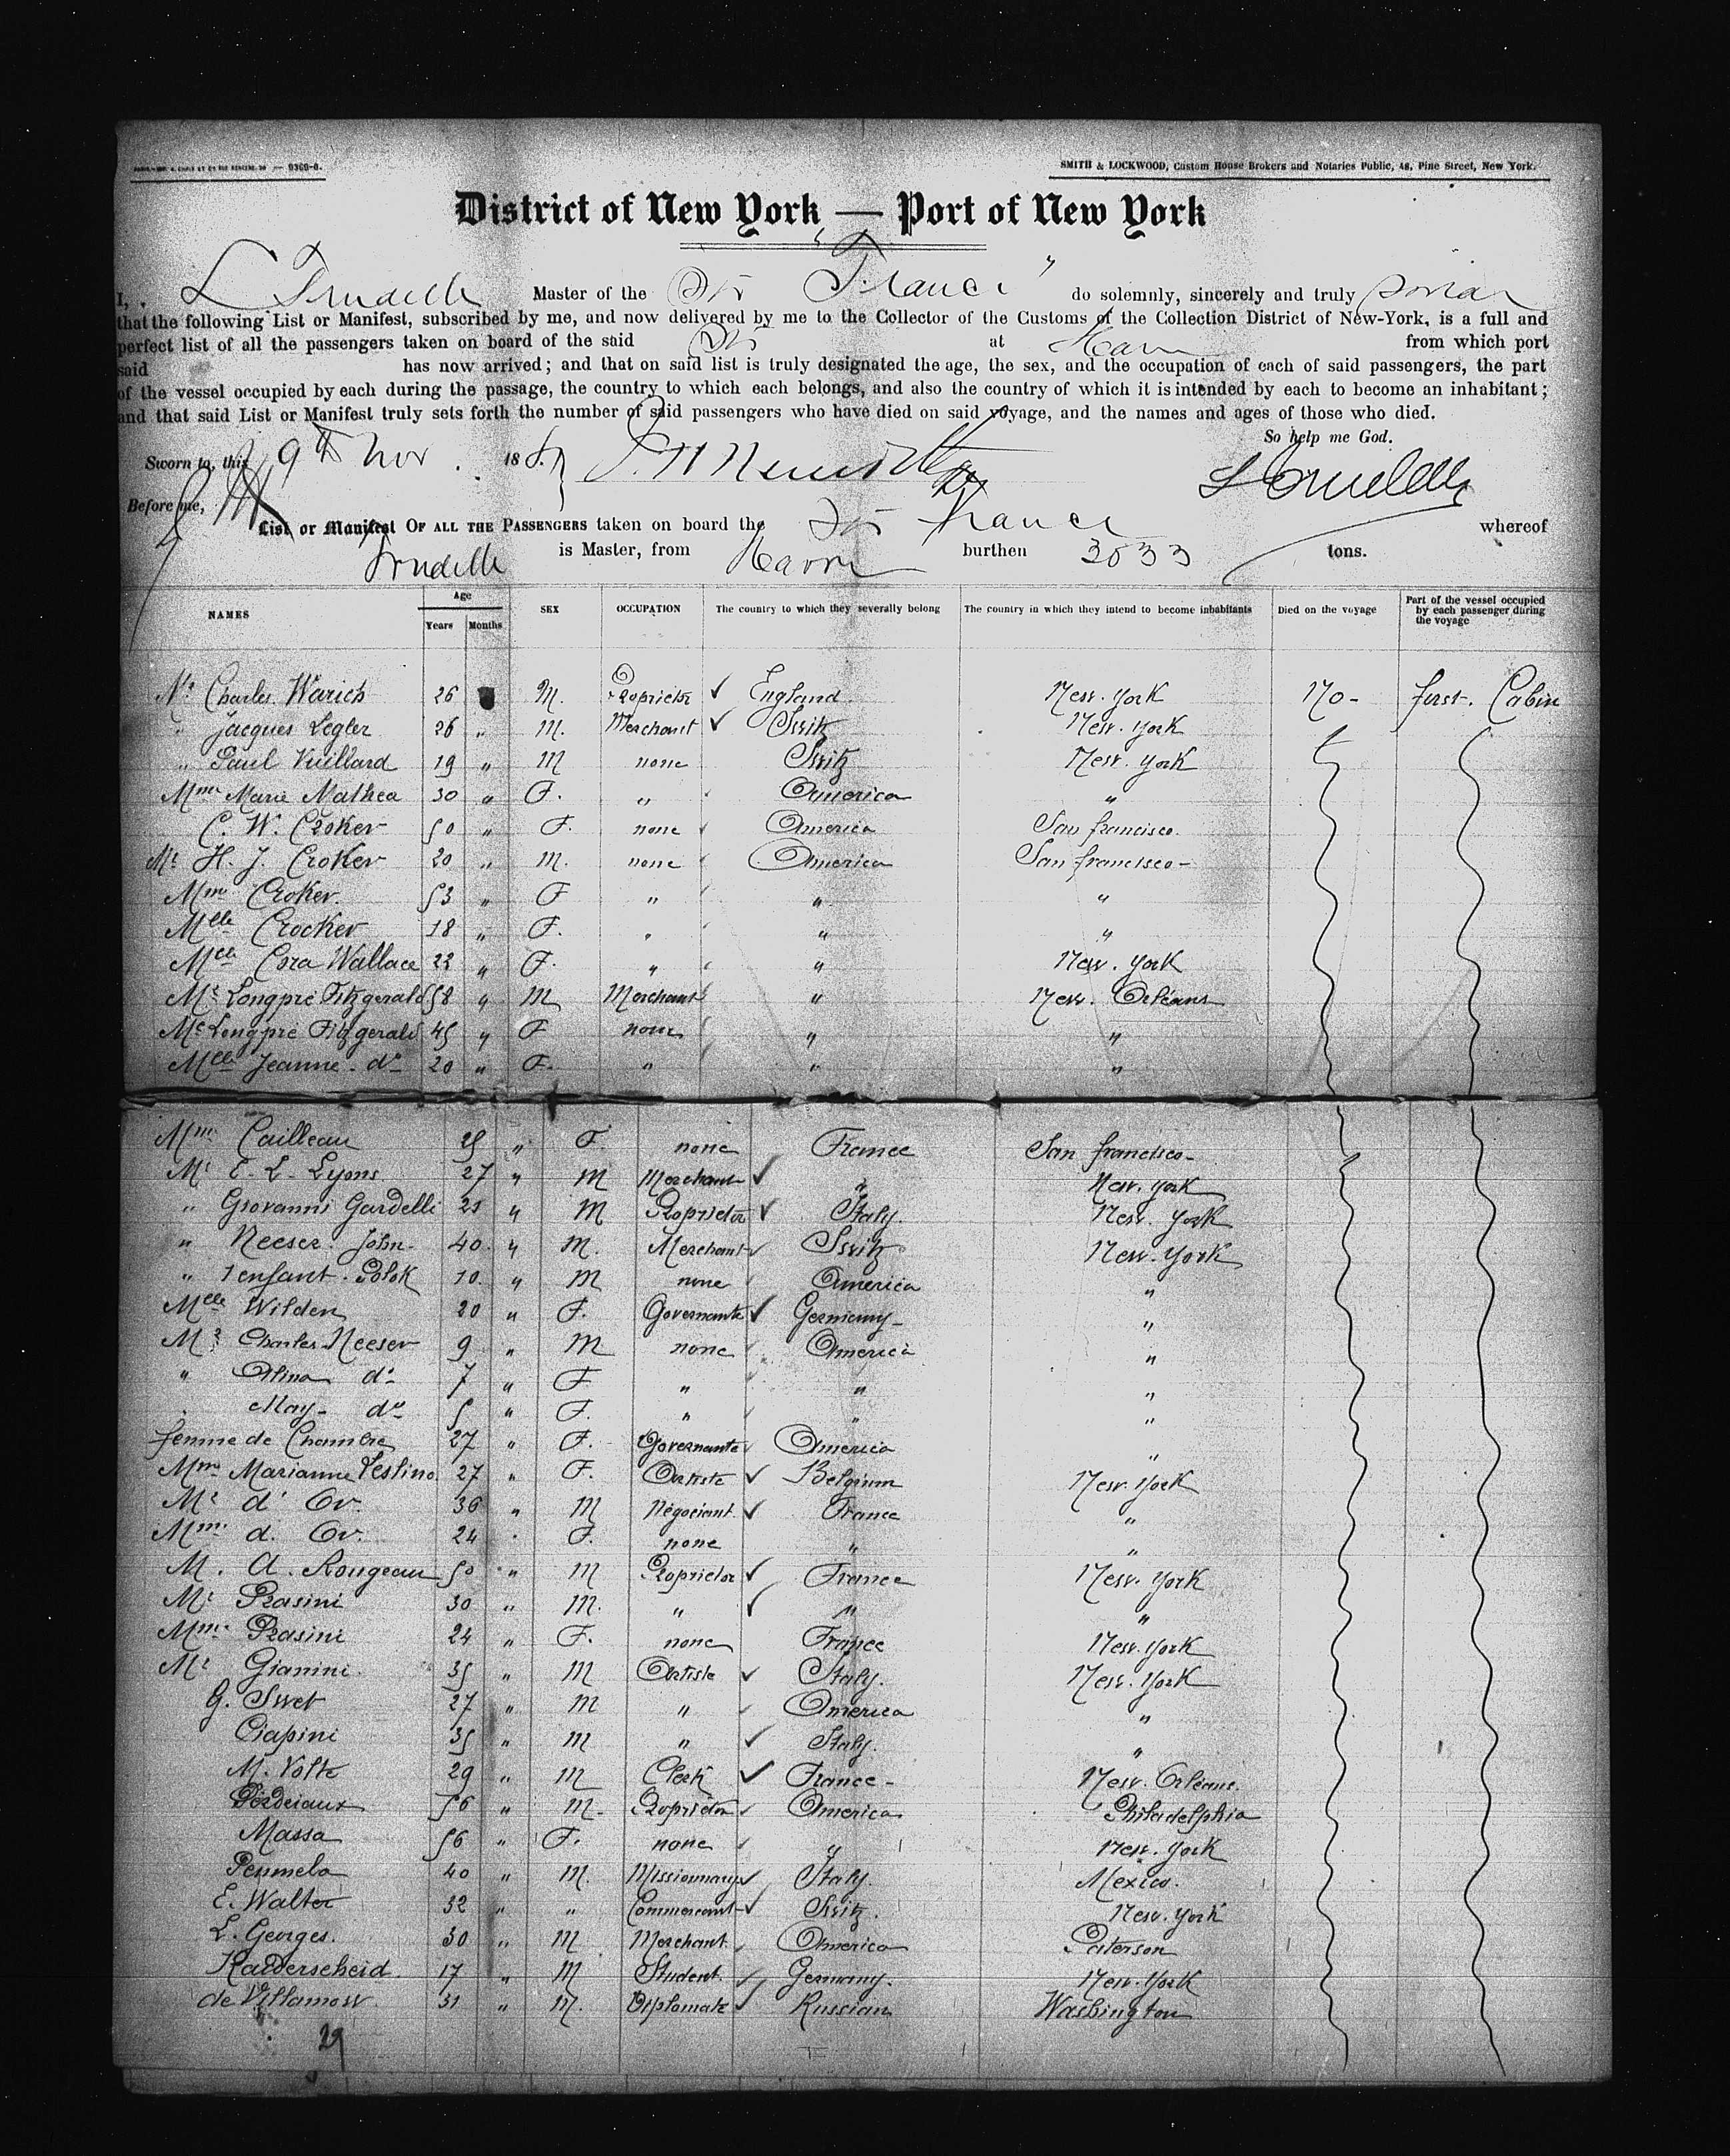 SMITH & LOCKWOOD, Custom House Brokers and Notaries Public, 48, Pine Street, New York.
District of New York — Port of New York
I, L Trudelle Master of the Str "France" do solemnly, sincerely and truly
that the following List or Manifest, subscribed by me, and now delivered by me to the Collector of the Customs of the Collection District of New-York, is a full and
perfect list of all the passengers taken on board of the said Str at Havre from which port
said has now arrived; and that on said list is truly designated the age, the sex, and the occupation of each of said passengers, the part
of the vessel occupied by each during the passage, the country to which each belongs, and also the country of which it is intended by each to become an inhabitant;
and that said List or Manifest truly sets forth the number of said passengers who have died on said voyage, and the names and ages of those who died.
So help me God.
Sworn to, this 9th Nov 18
Before me,
List or Manifest OF ALL THE PASSENGERS taken on board the Str France whereof
Trudelle is Master, from Havre burthen 3533 tons.
NAMES Age Years Months SEX OCCUPATION The country to which they severally belong The country in which they intend to become inhabitants Died on the voyage Part of the vessel occupied by each passenger during the voyage
Mr Charles Warich 26 M. Proprietor ✓ England New. York no - first. Cabin
" Jacques Legler 26 " M. Merchant ✓ Switz New. York
" Paul Vuillard 19 " M none Switz New. York
Mme Marie Mathea 30 " F. " America "
C. W. Croker 50 " F. none America San francisco.
Mr H. J. Croker 20 " M. none America San francisco -
Mme Croker. 53 " F " " "
Melle Crocker 18 " F. " " "
Melle Cora Wallace 22 " F. " " New. York
Mr Longpré Fitzgerald 58 " M Merchant " New. Orléans
Me Longpré Fitzgerald 45 " F none " "
Melle Jeanne - do 20 " F. " " "
Mme Cailleau 25 " F. none France San francisco -
Mr E. L. Lyons 27 " M Merchant ✓ " New. York
" Giovanni Gardelli 25 " M Proprietor ✓ Italy. New. York
" Neeser. John - 40. " M. Merchant ✓ Switz New. York
" 1 enfant. Polok 10. " M none America "
Melle Wilden 20 " F. Governante ✓ Germany - "
Mr Charles Neeser 9 " M none America "
" Alina do 7 " F " " "
May - do 5 " F. " " "
femme de Chambre 27 " F. Governante America "
Mme Marianne Veslino 27 " F. Artiste ✓ Belgium New. York
Mr d' Or. 36 " M Négociant ✓ France "
Mme d. Or. 24 " F. none " "
M. A. Rougeau 50 " M Proprietor ✓ France New. York
Mr Prasini 30 " M. " ✓ " "
Mme Prasini 24 " F. none France New. York
Mr Gianini. 35 " M Artiste ✓ Italy. New. York
G. Swet 27 " M " America "
Ciapini 35 " M " ✓ Italy. "
M. Voltz 29 " M Clerk ✓ France - New. Orléans.
Perdriaux 56 " M - Proprietor America Philadelphia
Massa 56 " F. none " New. York
Penmela 40 " M. Missionnary ✓ Italy. Mexico.
E. Walter 32 " " Commercant ✓ Switz. New. York
L. Georges. 30 " M Merchant. America Paterson
Kaiderscheid. 17 " M Student. Germany. New. York
de Villamow 31 " M. Diplomate ✓ Russian Washington
29